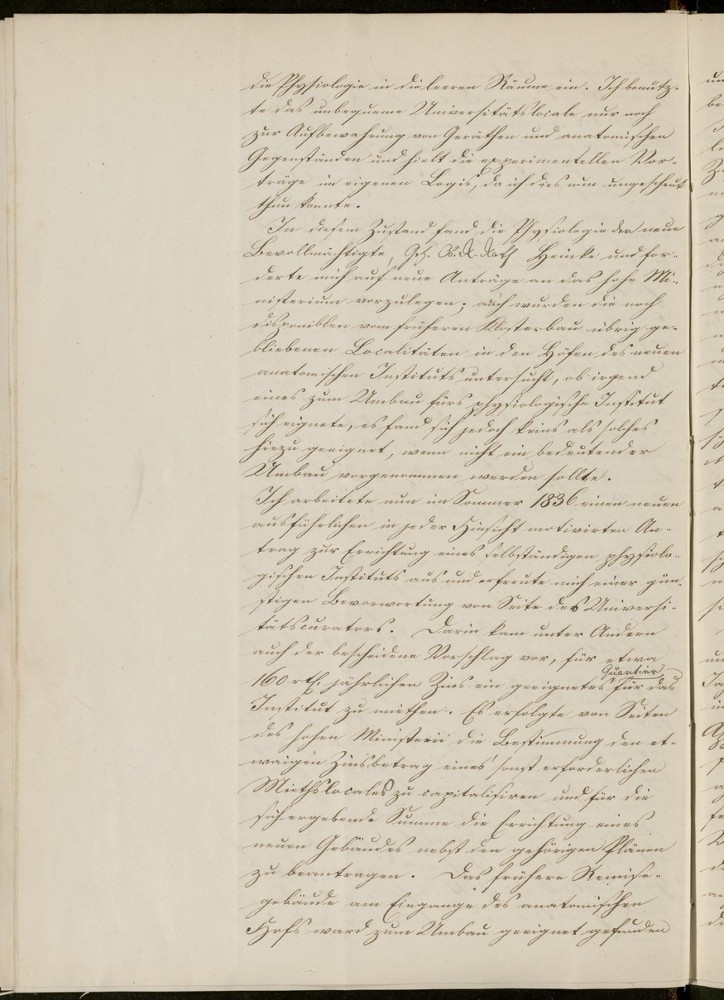 die Physiologie in die leeren Räume ein. Ich benutz-
te das unbequeme Universitätslocale nur noch
zur Aufbewahrung von Geräthen und anatomischen
Gegenständen und hielt die experimentellen Vor-
träge im eigenen Logis, da ich dies nun ungescheut
thun konnte.
In diesem Zustand fand die Physiologie der neue
Bevollmächtigte, Geh. Ob. R. Rath Heinke und for-
derte mich auf neue Anträge an das hohe Mi-
nisterium vorzulegen; auch wurden die noch
disponiblen vom früheren Klosterbau übrig ge-
bliebenen Localitäten in den Höfen des neuen
anatomischen Instituts untersucht, ob irgend
eines zum Umbau fürs physiologische Institut
sich eignete, es fand sich jedoch keins als solches
hiezu geeignet, wenn nicht ein bedeutender
Umbau vorgenommen werden sollte.
Ich arbeitete nun im Sommer 1836 einen neuen
ausführlichen in jeder Hinsicht motivirten An-
trag zur Errichtung eines selbständigen physiolo-
gischen Instituts aus und erfreute mich einer gün-
stigen Bevorwortung von Seite des Universi-
tätscurators. Darin kam unter Andern
auch der bescheidene Vorschlag vor, für etwa
160 rth. jährlichen Zins ein geeignetes Quartier für das
Institut zu miethen. Es erfolgte von Seiten
des hohen Ministerii die Bestimmung den et-
waigen Zinsbetrag eines sonst erforderlichen
Miethslocales zu capitalisiren und für die
sich ergebende Summe die Errichtung eines
neuen Gebäudes nebst den gehörigen Plänen
zu beantragen. Das frühere Remise-
gebäude am Eingange des anatomischen
Hofs ward zum Umbau geeignet gefunden